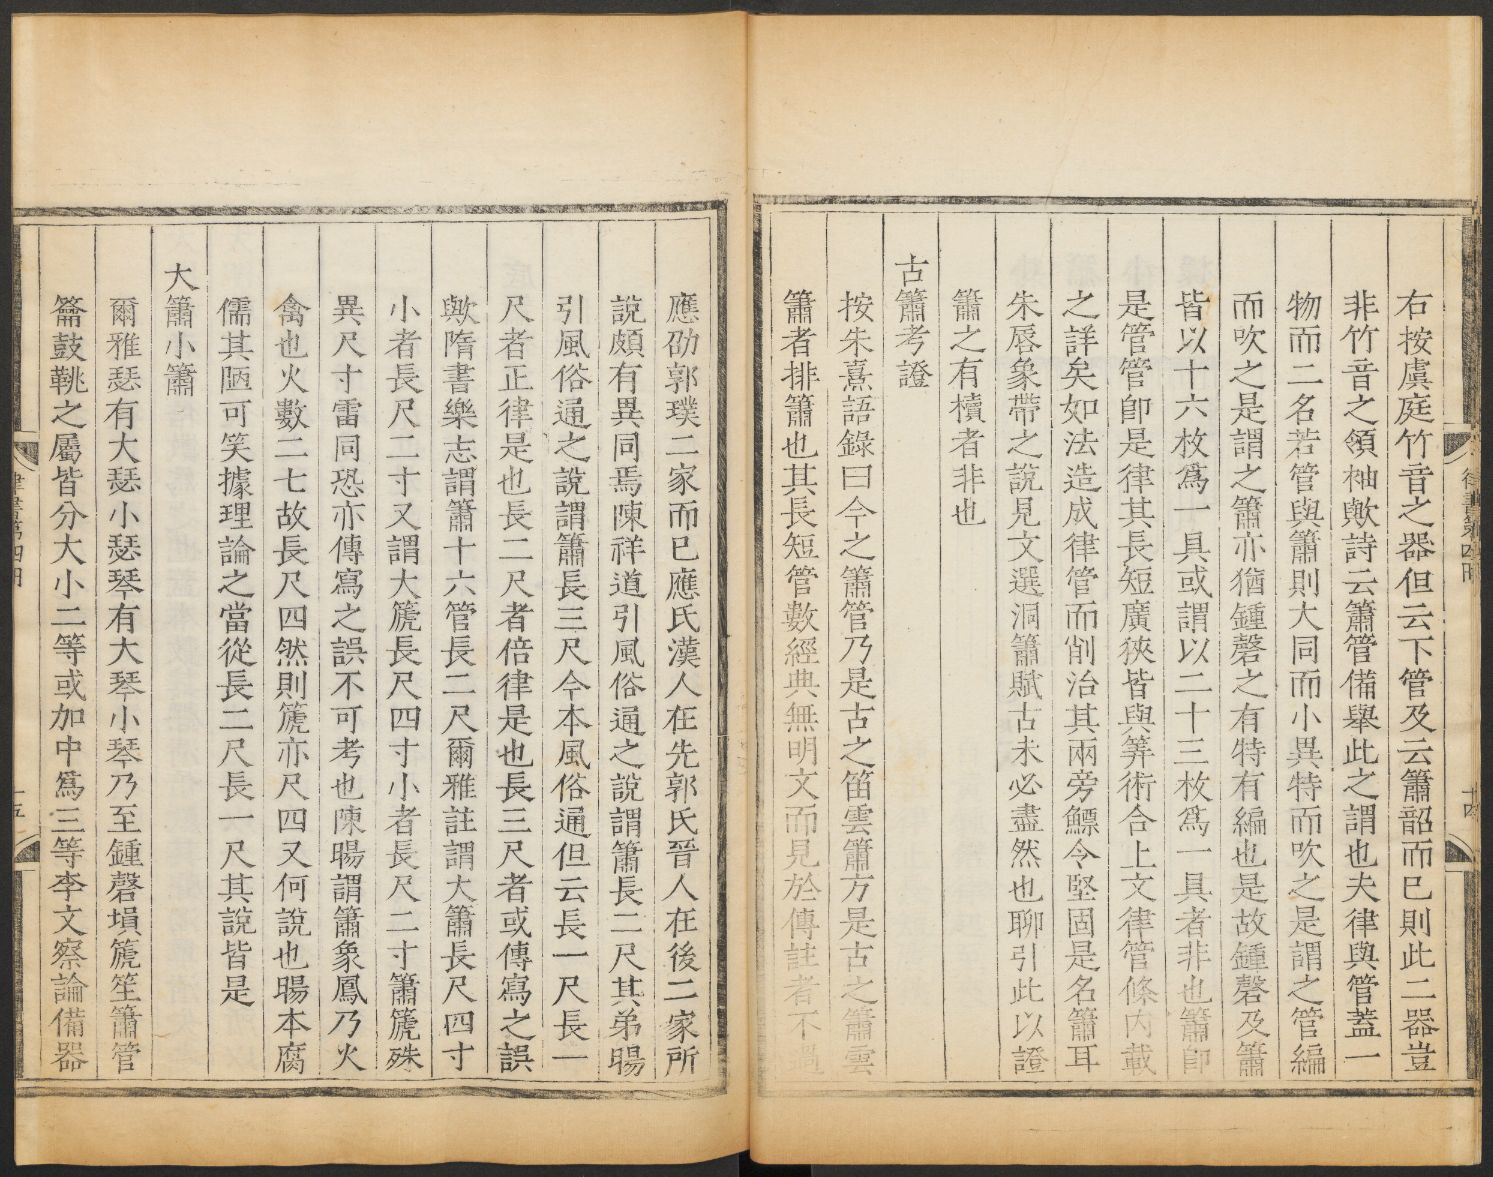 右按虞庭竹音之器但云下管及云簫韶而已則此二器豈
非竹音之領袖歟詩云簫管備舉此之謂也夫律與管蓋一
物而二名若管與簫則大同而小異特而吹之是謂之管編
而吹之是謂之簫亦猶鍾磬之有特有編也是故鍾磬及簫
皆以十六枚爲一具或謂以二十三枚爲一具者非也簫卽
是管管卽是律其長短廣狹皆與筭術合上文律管條內載
之詳矣如法造成律管而削治其兩旁鰾令堅固是名簫耳
朱唇象帶之說見文選洞簫賦古未必盡然也聊引此以證
簫之有櫝者非也
古簫考證
按朱熹語錄曰今之簫管乃是古之笛雲簫方是古之簫雲
簫者排簫也其長短管數經典無明文而見於傳註者不過
律書第四册
十四
應劭郭璞二家而已應氏漢人在先郭氏晉人在後二家所
說頗有異同焉陳祥道引風俗通之說謂簫長二尺其弟暘
引風俗通之說謂簫長三尺今本風俗通但云長一尺長一
尺者正律是也長二尺者倍律是也長三尺者或傳寫之誤
歟隋書樂志謂簫十六管長二尺爾雅註謂大簫長尺四寸
小者長尺二寸又謂大篪長尺四寸小者長尺二寸簫篪殊
異尺寸雷同恐亦傳寫之誤不可考也陳暘謂簫象鳳乃火
禽也火數二七故長尺四然則篪亦尺四又何說也暘本腐
儒其陋可笑據理論之當從長二尺長一尺其說皆是
大簫小簫
爾雅瑟有大瑟小瑟琴有大琴小琴乃至鍾磬塤篪笙簫管
籥鼓鞉之屬皆分大小二等或加中爲三等李文察論備器
律書第四册
十五